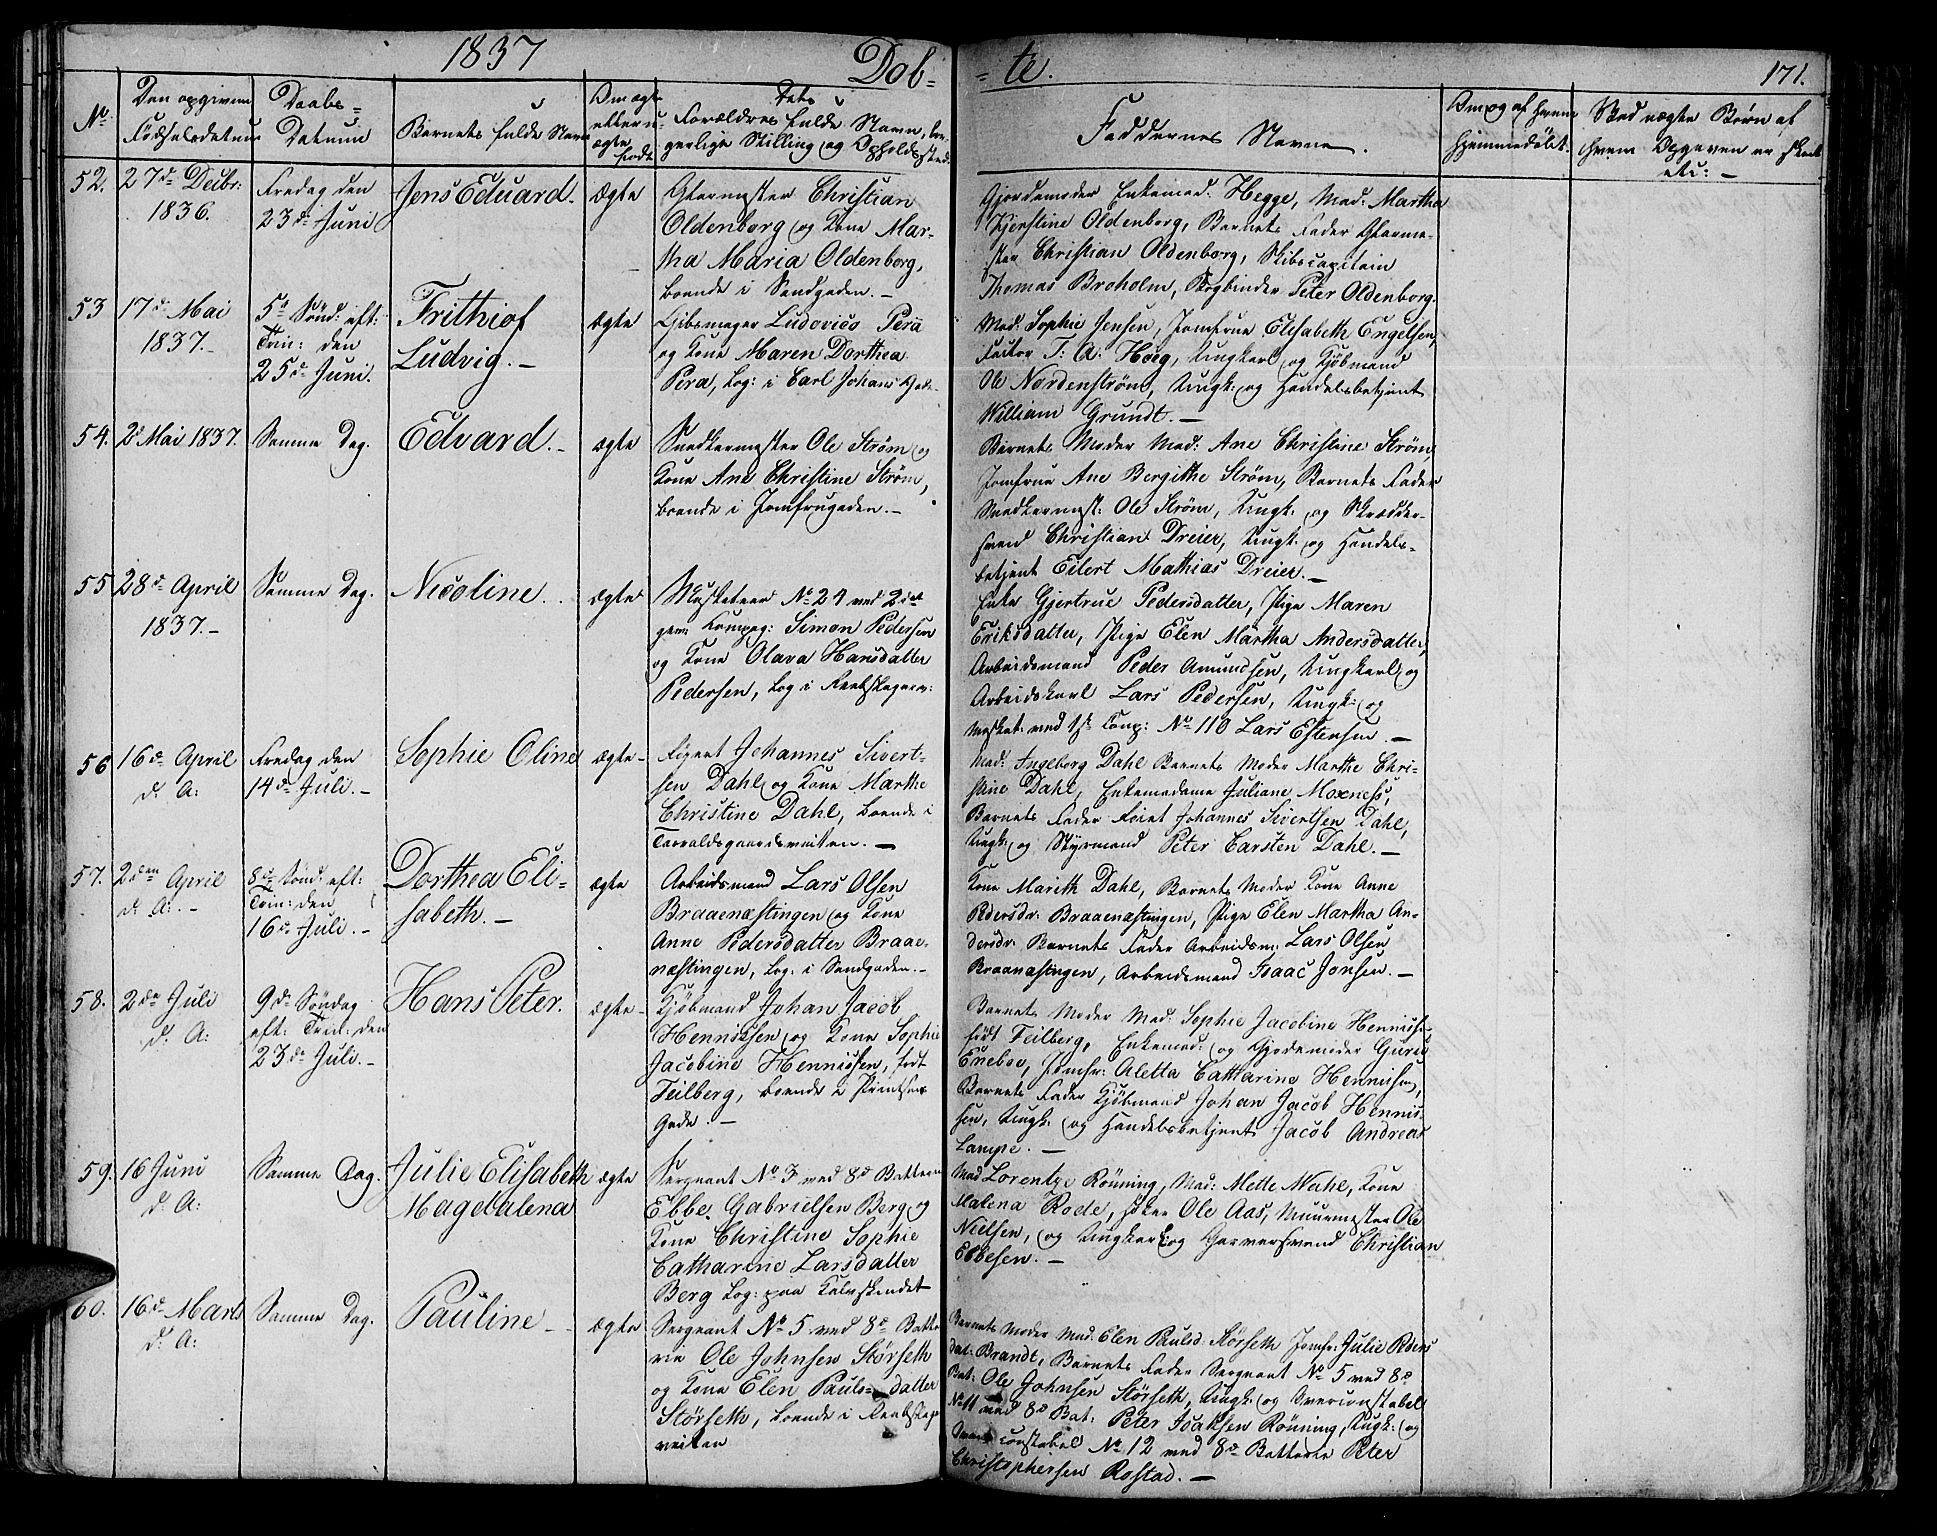 1837
Døb=
=te.
171.
No
Den opgivne
Fødselsdatum
Daabs=
Datum
Barnets fulde Navn
Om ægte
eller u=
ægte
født
Dets
Forældres fulde Navn, bor=
gerlige Stilling og Opholdssted
Faddernes Navne.
Om og af hvem
hjemmedøbt.
Ved uægte Børn af
hvem Opgaven er skeet
etc: —
52.
27de Decbr:
1836.
Fredag den
23de Juni
Jens Eduard.
Ægte
Glarmester Christian
Oldenborg og Kone Mar=
tha Maria Oldenborg,
boende i Sandgaden. —
Gjordemoder Enkemad: Hegge, Mad: Martha
Kjerstine Oldenborg, Barnets Fader Glarme=
ster Christian Oldenborg, Skibscapitain
Thomas Broholm, Bogbinder Peter Oldenborg.
53
17de Mai
1837. —
5te Sønd: eft:
Trin: den
25de Juni.
Frithiof
Ludvig. —
ægte
Gibsmager Ludovico Pera
og Kone Maren Dorthea
Pera, Log: i Carl Johans Gad
Mad: Sophie Jensen, Jomfrue Elisabeth Engelsen,
Factor T: A: Høeg, Ungkarl og Kjøbmand
Ole Nordenstrøm, Ungk: og Handelsbetjent
William Grundt. —
54.
2de Mai 1837.
Samme Dag.
Edvard. —
ægte
Snedkermester Ole Strøm og
Kone Ane Christine Strøm,
boende i Jomfrugaden. —
Barnets Moder Mad: Ane Christine Strøm,
Jomfrue Ane Bergithe Strøm, Barnets Fader
Snedkermest: Ole Strøm, Ungk: og Skrædder=
svend Christian Dreier, Ungk: og Handels=
betjent Eilert Mathias Dreier. —
55
28de April
1837. —
Samme Dag.
Nicoline.
ægte
Musketeer No 24 ved 2det
gem: Compag: Simon Pedersen
og Kone Olava Hansdatter
Pedersen, Log i Reebslagerv:
Enke Gjertrue Pedersdatter, Pige Maren
Eriksdatter, Pige Elen Martha Andersdatter,
Arbeidsmand Peder Amundsen, Ungkarl og
Arbeidskarl Lars Pedersen, Ungk: og
Musket: ved 1ste Comp: No 110 Lars Estensen. —
56
16de April
d: A:
Fredag den
14de Juli. —
Sophie Oline
ægte —
Figent Johannes Sivert=
sen Dahl og Kone Marthe
Christine Dahl, boende i
Taraldsgaardsveiten. —
Mad: Ingeborg Dahl Barnets Moder Marthe Chri=
stine Dahl, Enkemadame Juliane Moxness,
Barnets Fader Johannes Sivertsen Dahl,
Ungk: og Styrmand Peter Carsten Dahl. —
57.
2den April
d: A: —
8de Sønd: eft:
Trin: den
16de Juli. —
Dorthea Eli=
sabeth. —
ægte
Arbeidsmand Lars Olsen
Braaenæstingen og Kone
Anne Pedersdatter Braae=
næstingen, Log: i Sandgaden. —
Kone Marith Dahl, Barnets Moder Kone Anne
Pedersdr: Braaenæstingen, Pige Elen Martha An=
dersdr: Barnets Fader Arbeidsm: Lars Olsen
Braanæstingen, Arbeidsmand Isaac Jonsen. —
58.
2den Juli
d: A:
9de Søndag
eft: Trin: den
23de Juli. —
Hans Peter.
ægte —
Kjøbmand Johan Jacob
Hennissen og Kone Sophie
Jacobine Hennissen, født
Feilberg, boende i Printsens
Gade. —
Barnets Moder Mad: Sophie Jacobine Hennissen
født Feilberg, Enkemad: og Gjordemoder Guru
Eneboe, Jomfr: Aletta Catharine Hennissen,
Barnets Fader Kjøbmand Johan Jacob Hennis=
sen, Ungk: og Handelsbetjent Jacob Andreas
Lampe. —
59.
16 Juni
d: A:
Samme Dag.
Julie Elisabeth
Magdalena
ægte
Sergeant No 3 ved 8de Batterie
Ebbe Gabrielsen Berg og
Kone Christine Sophie
Catharine Larsdatter
Berg Log: paa Kalvskindet
Mad Lorentze Rönning, Mad: Mette Muhl, Kone
Malena Rode, Høker Ole Aas, Muurmester Ole
Nielsen, og Ungkarl og Garversvend Christian
Ebbesen. —
60.
16de Marts
d: A:
Samme Dag.
Pauline —
ægte
Sergeant No 5 ved 8de Batte
rie Ole Johnsen Störseth
og Kone Elen Pauls= datter
Störseth, boende i Reebslager
veiten
Barnets Moder Mad: Elen Paulsd: Störseth Jomfr: Julie Roers
dat: Brandt, Barnets Fader Sergeant No 5 ved 8de
Bat: Ole Johnsen Störseth, Ungk: og Overconstabel
No 11 ved 8de Bat: Peter Isaksen Rönning, Ungk: og
Overconstabel No 12 ved 8de Batterie Peter
Christophersen Rostad. —